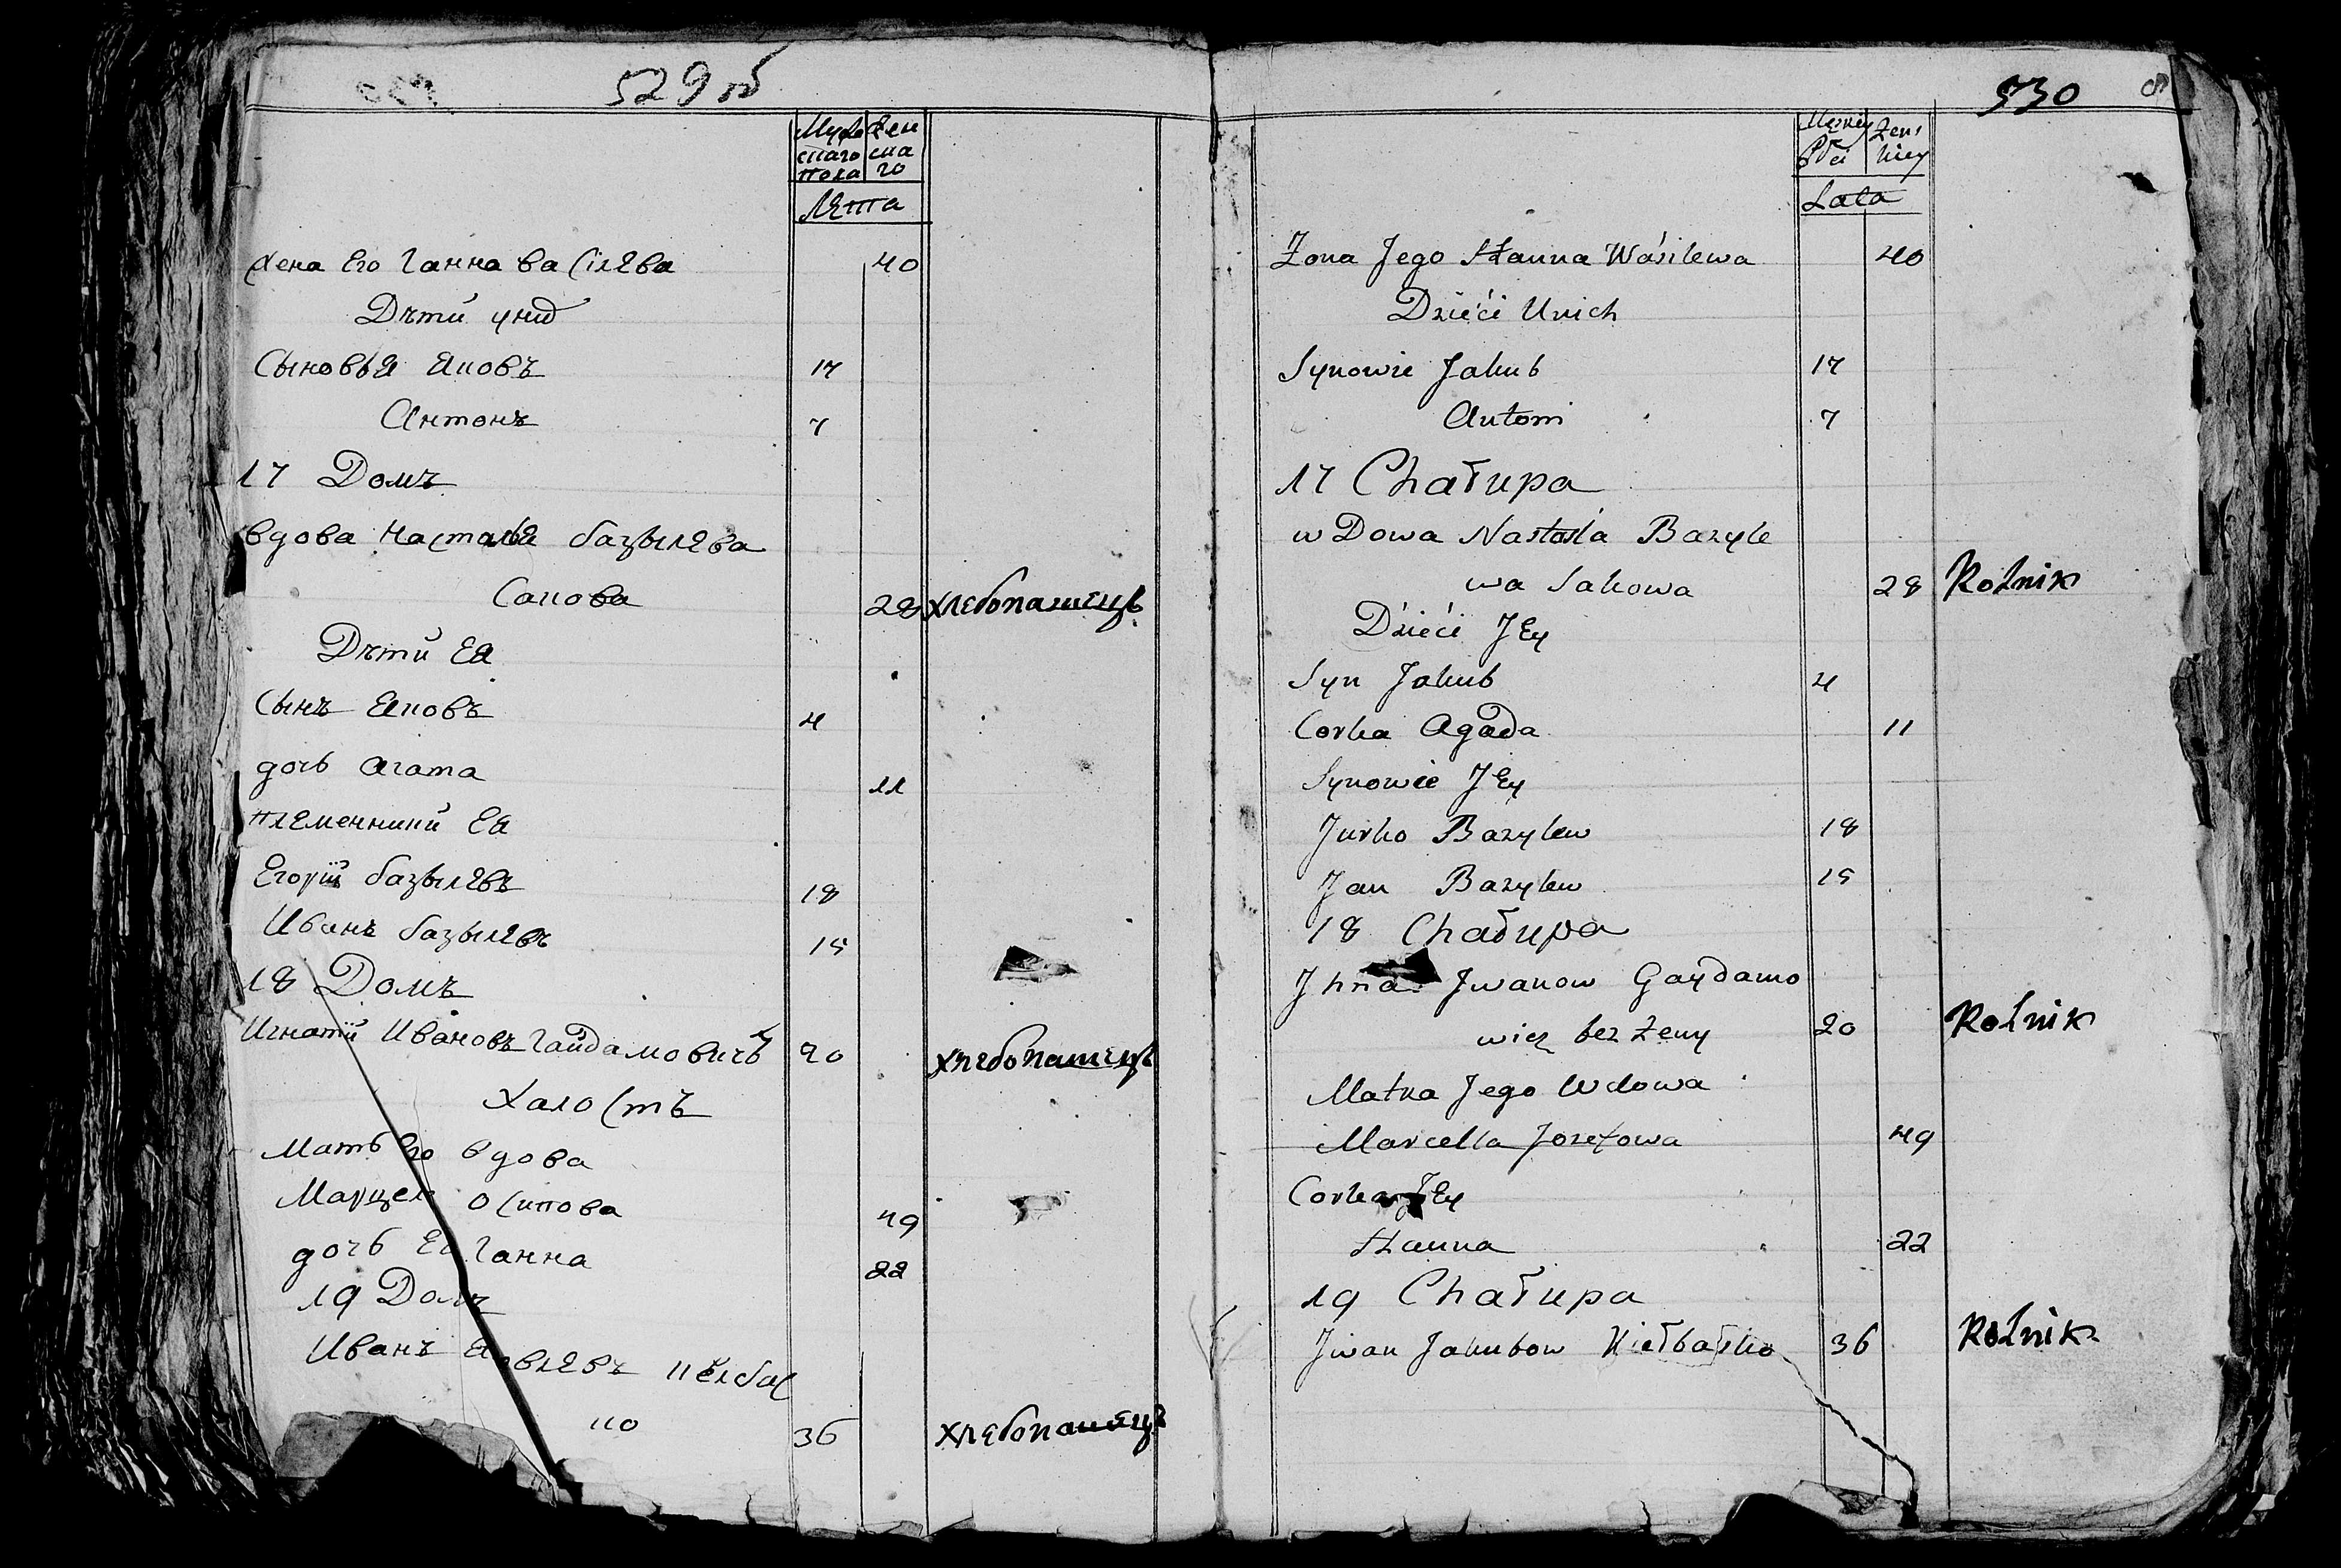 529 об
Мужескаго пола
Женскаго
Лѣта
Жена Его Ганна васілева 40
Дѣти унид
Сыновья Яковъ 17
Антонъ 7
17 Домъ
вдова Насталья базылева
Сакова 28 хлебопашецъ
Дѣти Ея
Сынъ Яковъ 4
дочь агата 11
племенники Ея
Егорій базылевъ 18
Иванъ базылевъ 15
18 Домъ
Игнатій Ивановъ Гайдамовичъ 20 хлебопашецъ
Халостъ
Мать Его вдова
Марцел Осипова 49
дочь Ея Ганна 22
19 Домъ
Иванъ Яковлевъ Кёлбас
ко 36 хлебопашецъ
530
Męzkiey Płci
Żenskiey
Lata
Żona Jego Hanna Waśilewa 40
Dzieći Unich
Synowie Jakub 17
Antoni 7
17 Chałupa
wDowa Nastośla Bazyle
wa Sakowa 28 Rolnik
Dzieći Jey
Syn Jakub 4
Corka Agada 11
Synowie Jey
Jurko Bazylew 18
Jan Bazylew 15
18 Chałupa
Jhna Jwanow Gaydamo
wicz bez żeny 20 Rolnik
Matka Jego Wdowa
Marcella Jozefowa 49
Corka Jey
Hanna 22
19 Chałupa
Jwan Jakubow Kiełbasko 36 Rolnik